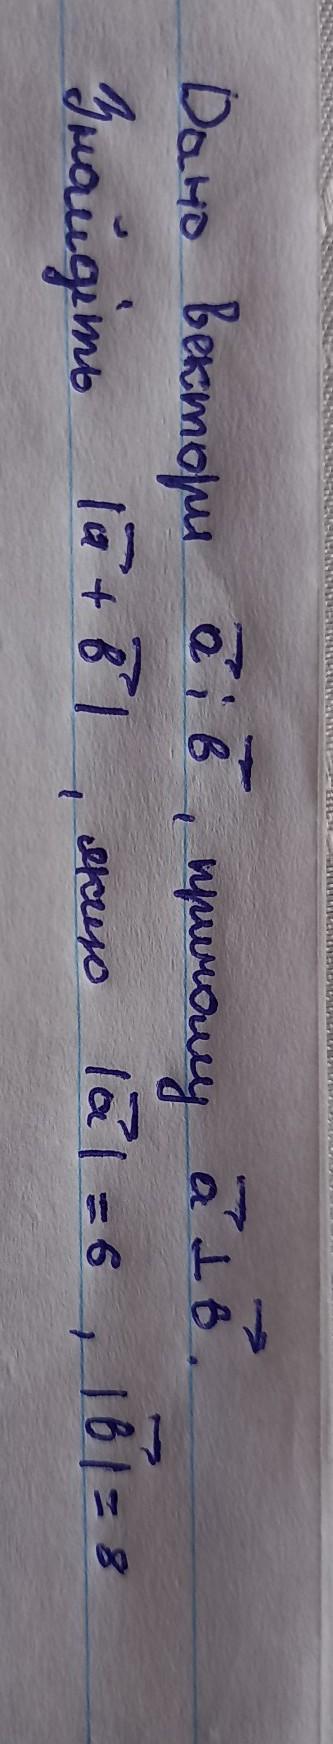 Дано вектори a⃗ і b⃗, причому a⃗ ⊥ b⃗.
Знайдіть |a⃗ + b⃗|, якщо |a⃗| = 6, |b⃗| = 8